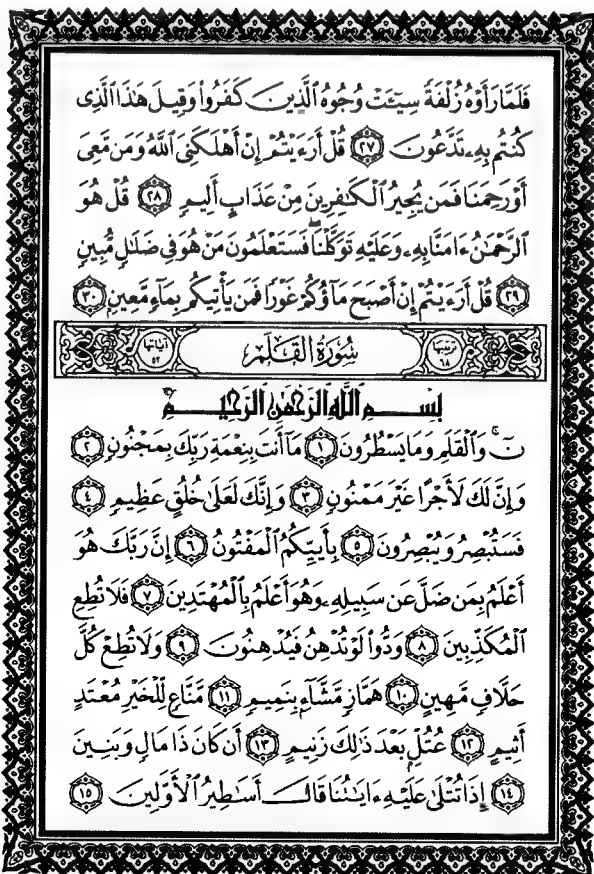 فَلَمَّا رَأَوْهُ زُلْفَةً سِيٓـَٔتْ وُجُوهُ ٱلَّذِينَ كَفَرُوا۟ وَقِيلَ هَٰذَا ٱلَّذِى
كُنتُم بِهِۦ تَدَّعُونَ ٢٧ قُلْ أَرَءَيْتُمْ إِنْ أَهْلَكَنِىَ ٱللَّهُ وَمَن مَّعِىَ
أَوْ رَحِمَنَا فَمَن يُجِيرُ ٱلْكَٰفِرِينَ مِنْ عَذَابٍ أَلِيمٍ ٢٨ قُلْ هُوَ
ٱلرَّحْمَٰنُ ءَامَنَّا بِهِۦ وَعَلَيْهِ تَوَكَّلْنَا ۖ فَسَتَعْلَمُونَ مَنْ هُوَ فِى ضَلَٰلٍ مُّبِينٍ
٢٩ قُلْ أَرَءَيْتُمْ إِنْ أَصْبَحَ مَآؤُكُمْ غَوْرًا فَمَن يَأْتِيكُم بِمَآءٍ مَّعِينٍ ٣٠
ترتيبها ٦٨ سُورَةُ القَلَمِ آياتها ٥٢
بِسْمِ ٱللَّهِ ٱلرَّحْمَٰنِ ٱلرَّحِيمِ
نٓ ۚ وَٱلْقَلَمِ وَمَا يَسْطُرُونَ ١ مَآ أَنتَ بِنِعْمَةِ رَبِّكَ بِمَجْنُونٍ ٢
وَإِنَّ لَكَ لَأَجْرًا غَيْرَ مَمْنُونٍ ٣ وَإِنَّكَ لَعَلَىٰ خُلُقٍ عَظِيمٍ ٤
فَسَتُبْصِرُ وَيُبْصِرُونَ ٥ بِأَييِّكُمُ ٱلْمَفْتُونُ ٦ إِنَّ رَبَّكَ هُوَ
أَعْلَمُ بِمَن ضَلَّ عَن سَبِيلِهِۦ وَهُوَ أَعْلَمُ بِٱلْمُهْتَدِينَ ٧ فَلَا تُطِعِ
ٱلْمُكَذِّبِينَ ٨ وَدُّوا۟ لَوْ تُدْهِنُ فَيُدْهِنُونَ ٩ وَلَا تُطِعْ كُلَّ
حَلَّافٍ مَّهِينٍ ١٠ هَمَّازٍ مَّشَّآءٍۭ بِنَمِيمٍ ١١ مَّنَّاعٍ لِّلْخَيْرِ مُعْتَدٍ
أَثِيمٍ ١٢ عُتُلٍّۭ بَعْدَ ذَٰلِكَ زَنِيمٍ ١٣ أَن كَانَ ذَا مَالٍ وَبَنِينَ
١٤ إِذَا تُتْلَىٰ عَلَيْهِ ءَايَٰتُنَا قَالَ أَسَٰطِيرُ ٱلْأَوَّلِينَ ١٥